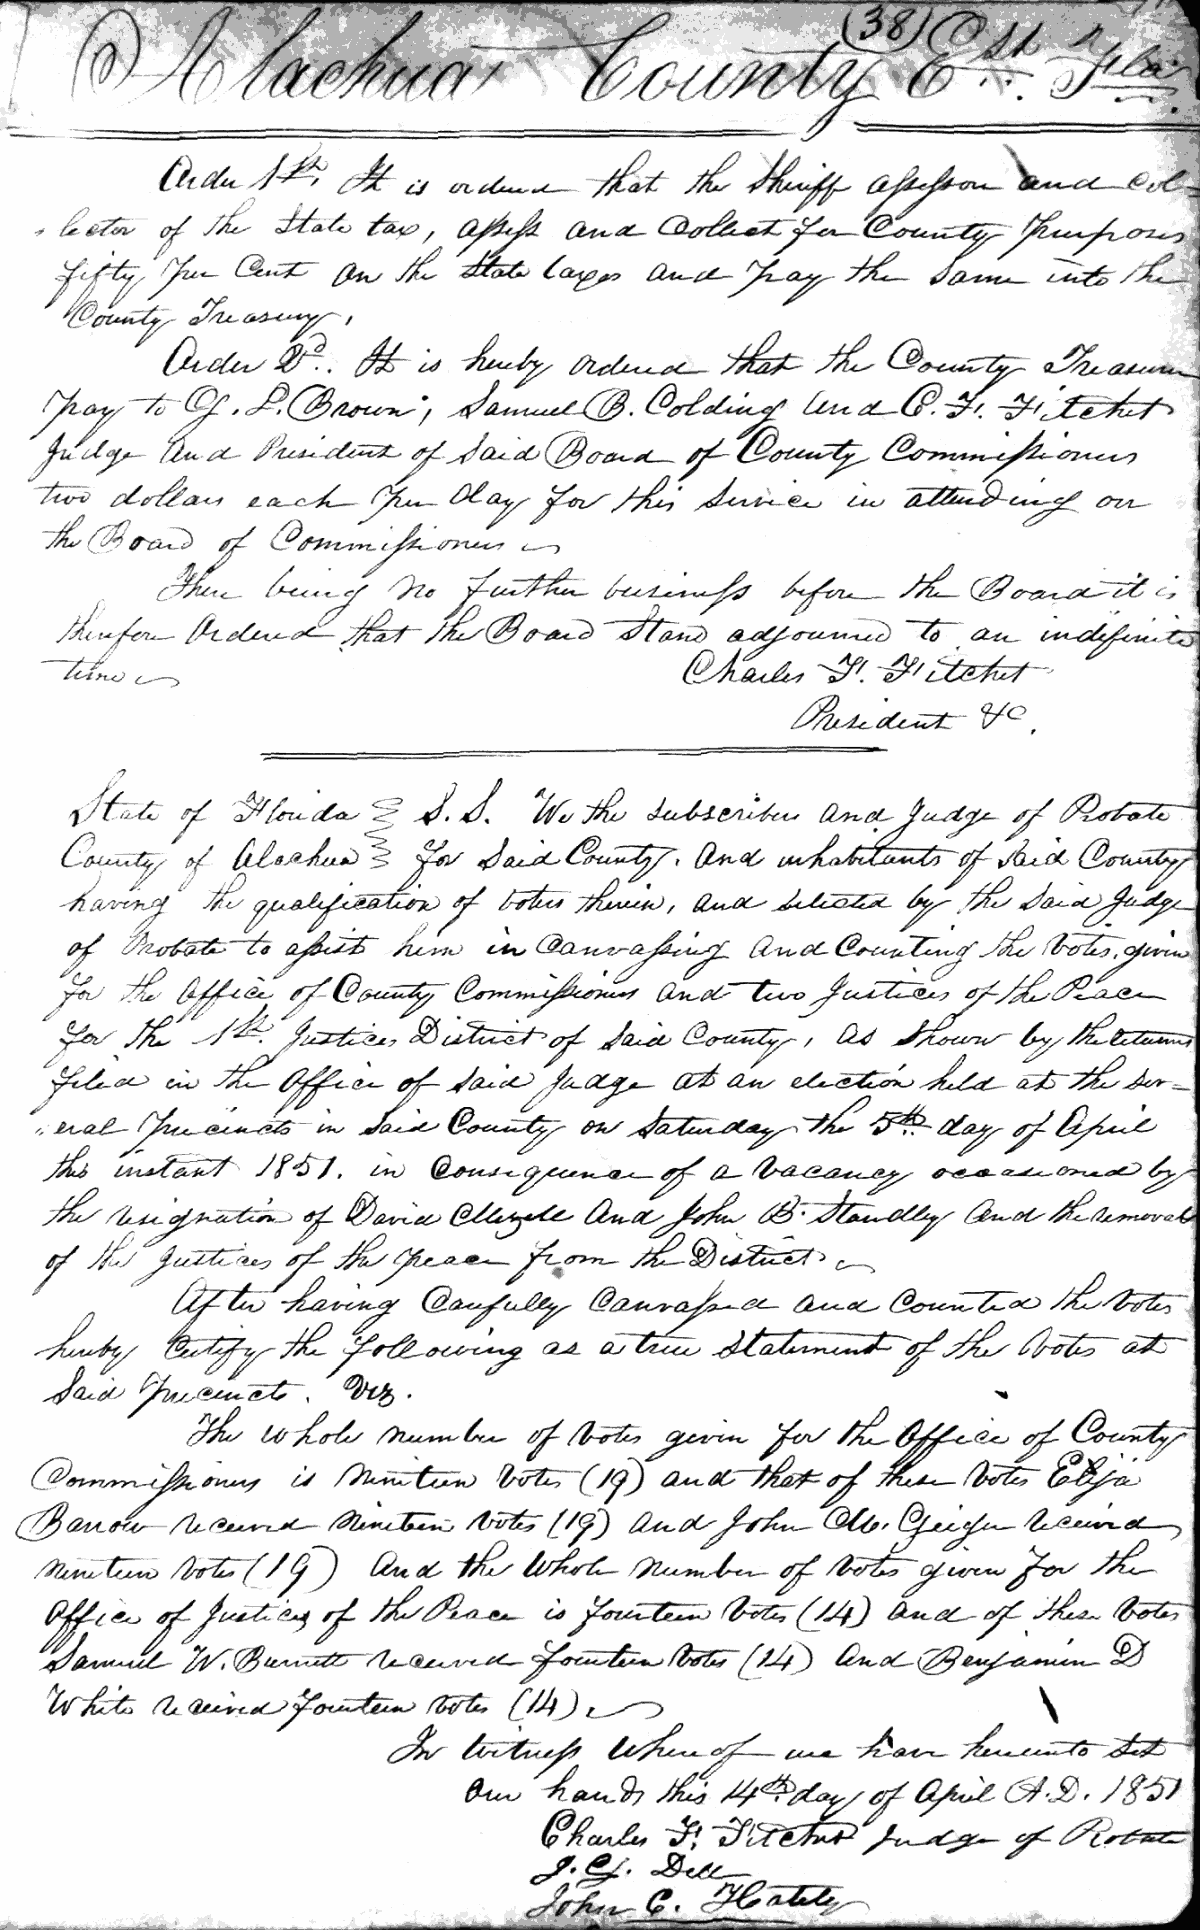 (38)
Alachua County Est Fla.
Order 1st. It is ordered that the Sheriff assessor and col-
lector of the State tax, assess and Collect for County Purposes
fifty per Cent on the State taxes and pay the same into the
County Treasury.
Order 2d.. It is hereby ordered that the County Treasurer
pay to G. L. Brown, Samuel B. Colding and C. F. Fitchet
Judge and President of said Board of County Commissioners
two dollars each per day for this service in attending on
the Board of Commissioners
There being no further business before the Board it is
therefore Ordered that the Board Stand adjourned to an indefinite
time
Charles F. Fitchet
President &c.
State of Florida } S.S. We the subscribers and Judge of Probate
County of Alachua } for said County. and inhabitants of said County
having the qualification of voters therein, and selected by the said Judge
of Probate to assist him in Canvassing and Counting the votes given
for the office of County Commissioners and two Justices of the Peace
for the 1st. Justices District of said County, as shown by the returns
filed in the Office of said Judge at an election held at the sev-
eral precincts in said County on Saturday the 5th day of April
this instant 1851. in consequence of a vacancy occasioned by
the resignation of David Mizell and John B. Standley and the removal
of the Justices of the peace from the District
After having Carefully Canvassed and counted the votes
hereby certify the following as a true statement of the votes at
said precincts. Viz.
The whole number of votes given for the office of County
Commissioners is nineteen votes (19) and that of these votes Elija
Barrow received nineteen votes (19) and John M. Geiger received
nineteen votes (19) and the whole number of votes given for the
office of Justices of the Peace is fourteen votes (14) and of these votes
Samuel W. Burnett received fourteen votes (14) and Benjamin D
White received fourteen votes (14)
In witness whereof we have hereunto set
our hands this 14th day of April A.D. 1851
Charles F. Fitchet Judge of Probate
J. G. Dell
John C. Hately